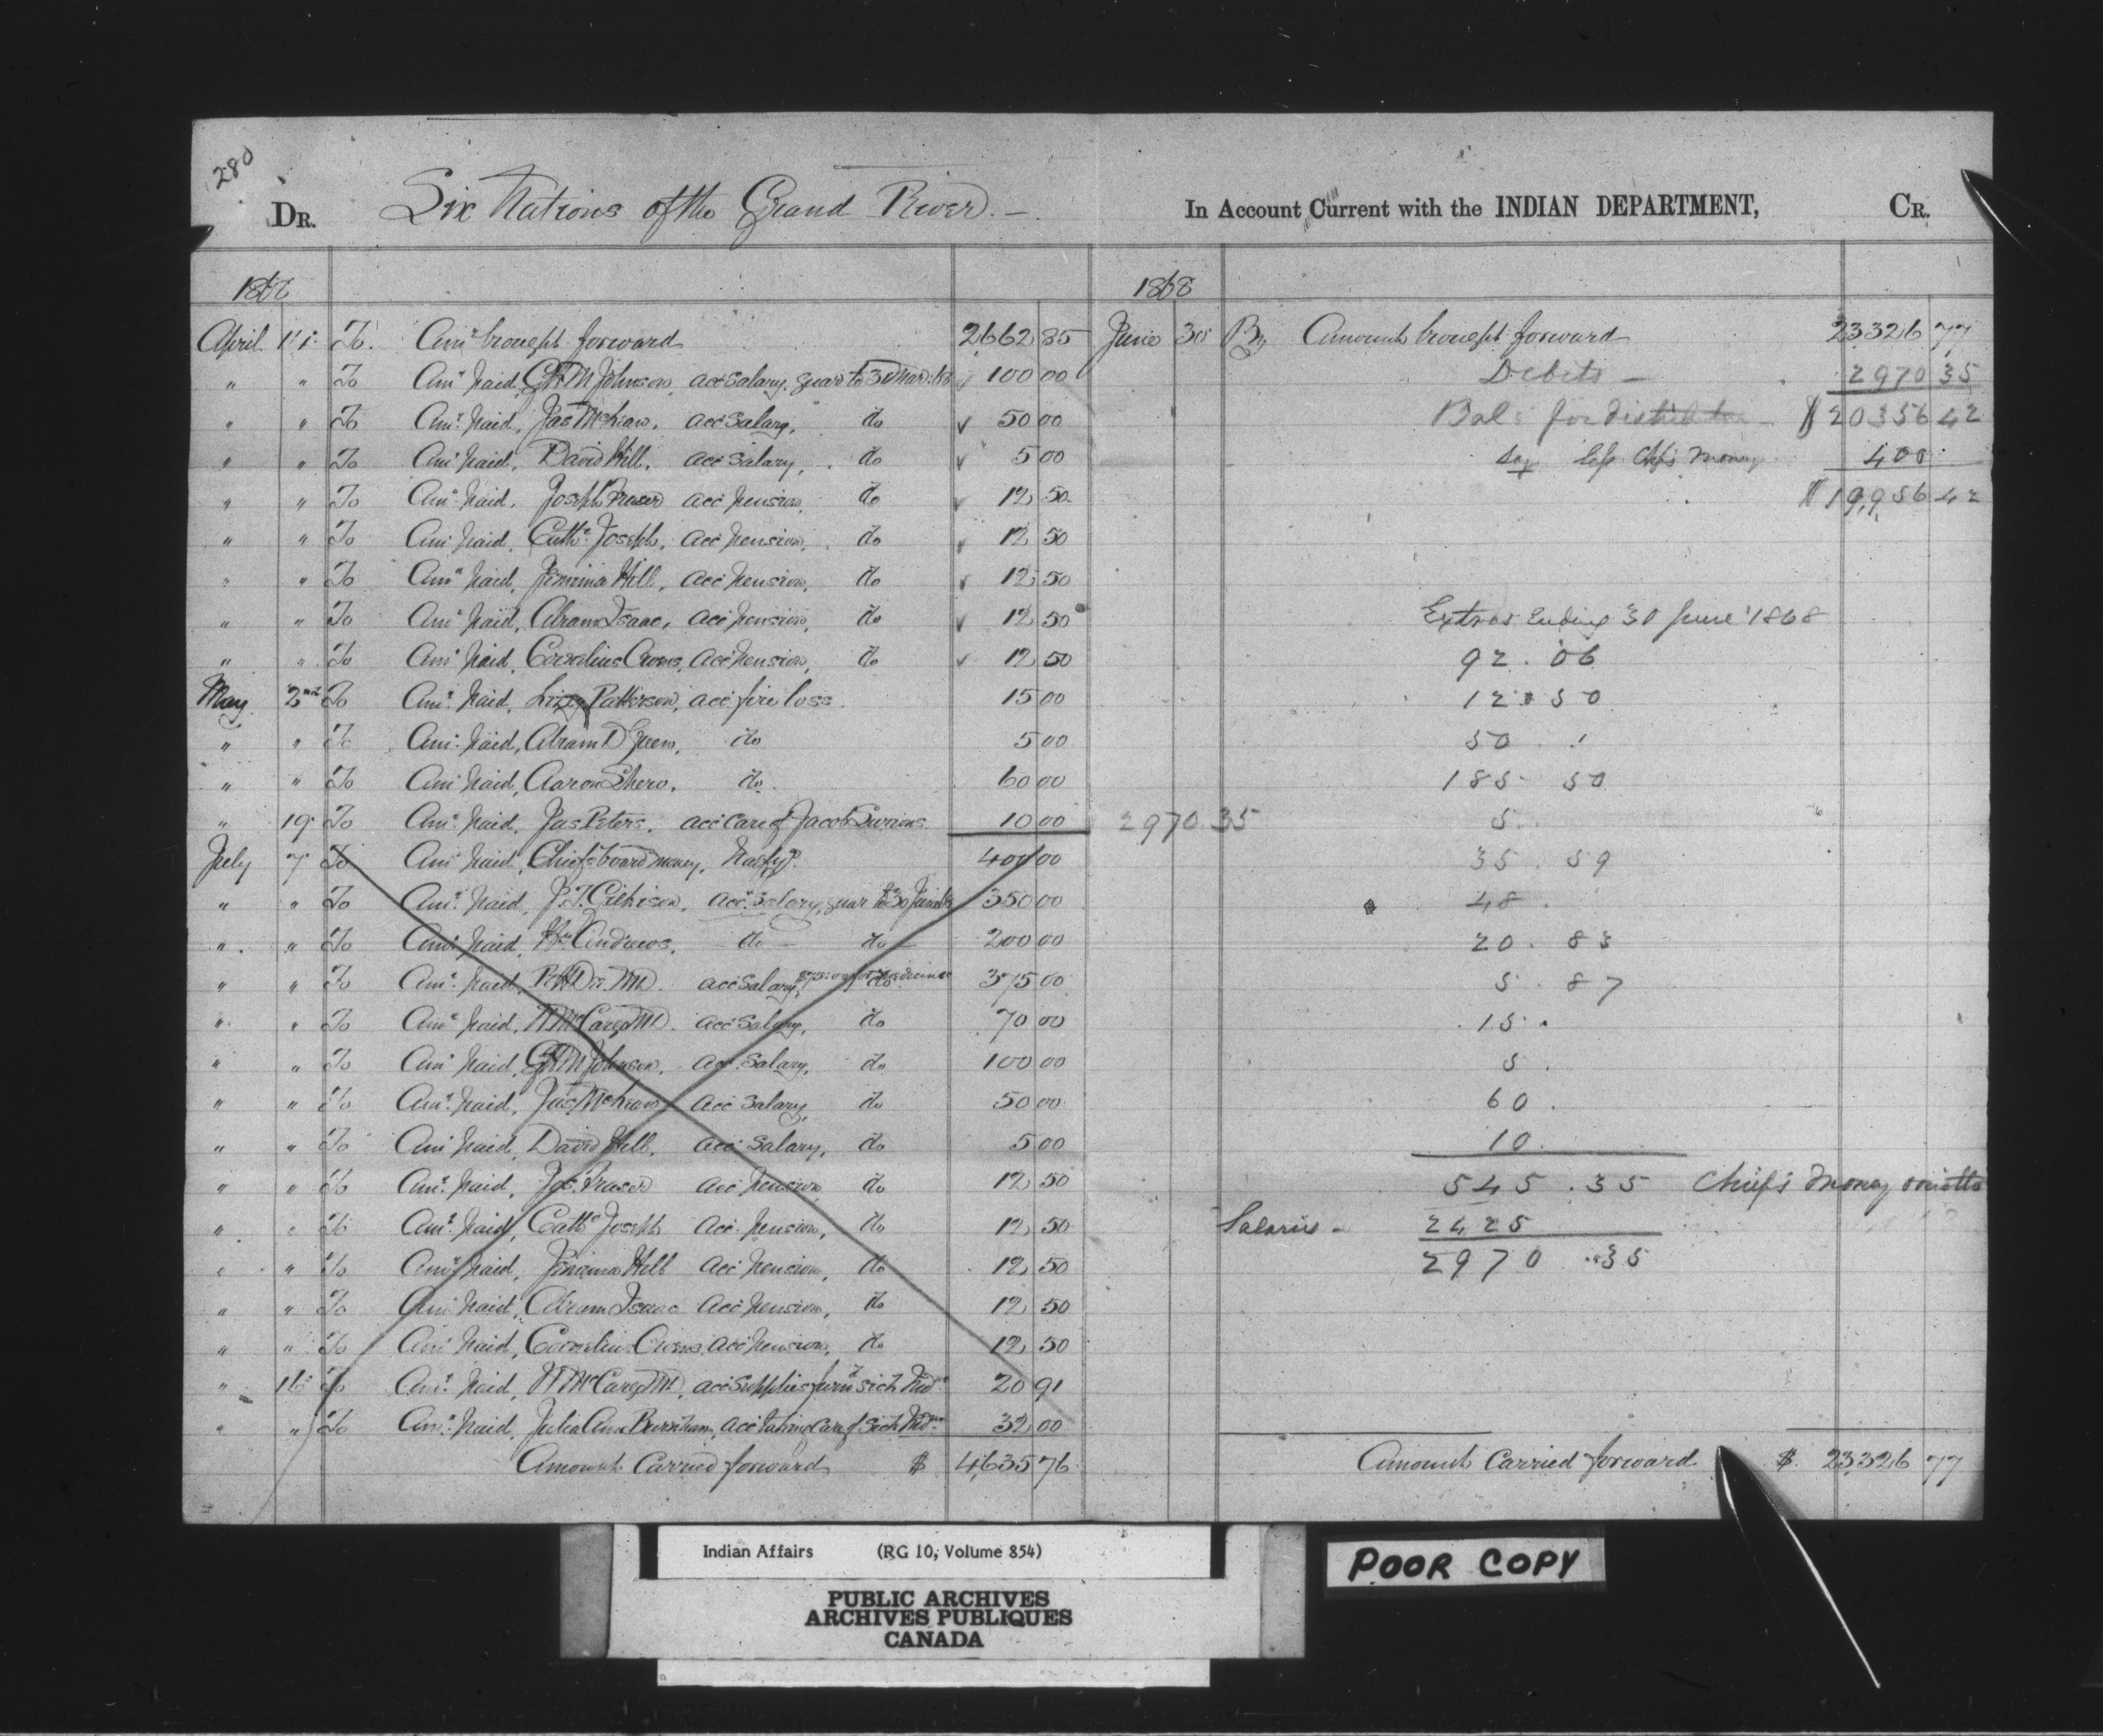 280
DR. Six Nations of the Grand River. — In Account Current with the INDIAN DEPARTMENT, CR.
1868
April 1st To. Amt brought forward 2662 85
" " To Amt paid, G.H.M Johnson, acc salary, quar to 31 Mar. 100 00
" " To Amt paid, Jas McLean, acc Salary, do 50 00
" " To Amt paid, David Hill, acc Salary, do 5 00
" " To Amt paid, Joseph Fraser acc pension, do 12 50
" " To Amt paid, Cathe Joseph, acc pension, do 12 50
" " To Amt paid, Jemima Hill, acc pension, do 12 50
" " To Amt paid, Abram Isaac, acc pension, do 12 50
" " To Amt paid, Cornelius Owens, acc pension, do 12 50
May 2nd To Amt paid, Lizzy Patterson, acc fire loss 15 00
" " To Amt paid, Abram D Green, do 5 00
" " To Amt paid, Aaron Shero, do 60 00
" 19 To Amt paid, Jas Peters, acc care of Jacob 10 00
July 7 To Amt paid, Chiefs board money, 400 00
" " To Amt paid, J.T. Gilkison, acc Salary, quar to 30 June 350 00
" " To Amt paid, Wm Andrews, do do 200 00
" " To Amt paid, R.H. Dee. MD. acc Salary, do 375 00
" " To Amt paid, W McCargo MD. acc Salary, do 70 00
" " To Amt paid, G.H.M Johnson, acc Salary, do 100 00
" " To Amt paid, Jas McLean, acc Salary, do 50 00
" " To Amt paid, David Hill, acc Salary, do 5 00
" " To Amt paid, Jos. Fraser acc pension do 12 50
" " To Amt paid, Cathe Joseph acc pension, do 12 50
" " To Amt paid, Jemima Hill acc pension, do 12 50
" " To Amt paid, Abram Isaac acc pension, do 12 50
" " To Amt paid, Cornelius Owens, acc pension, do 12 50
" 16 To Amt paid, W McCargo MD, acc supplies furnd sick Inds 20 91
" " To Amt paid, Julia Ann Burnham, acc taking care of sick Inds 32 00
Amount Carried forward $ 4,635 76
1868
June 30 By Amount brought forward 23326 77
Debits — 2970 35
Bal: for distribution $20356 42
Say Chfs money 400
$19,956 42
Extras Ending 30 June 1868
92 . 06
12 . 50
50 .
185 50
2970 35
5.
35 . 59
48 .
20 . 83
5 . 87
15 .
5 .
60 .
10.
545 . 35 Chiefs money
Salaries - 2425
2970 . 35
Amount Carried forward $ 23,326 77
Indian Affairs (RG 10, Volume 854)
PUBLIC ARCHIVES
ARCHIVES PUBLIQUES
CANADA
POOR COPY